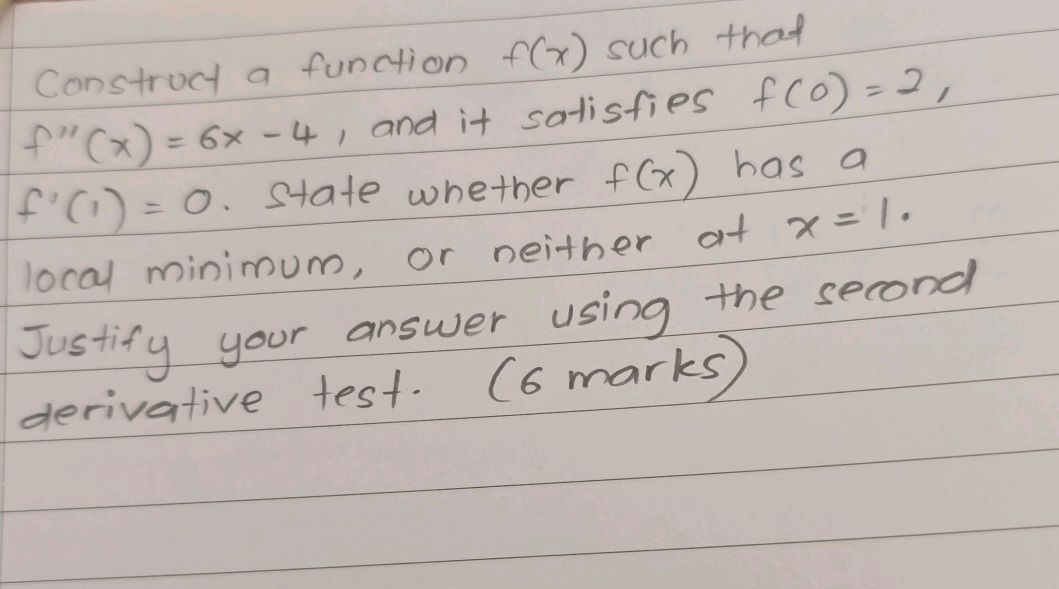 Construct a function f(x) such that
f''(x) = 6x - 4, and it satisfies f(0) = 2,
f'(1) = 0. State whether f(x) has a
local minimum, or neither at x = 1.
Justify your answer using the second
derivative test. (6 marks)